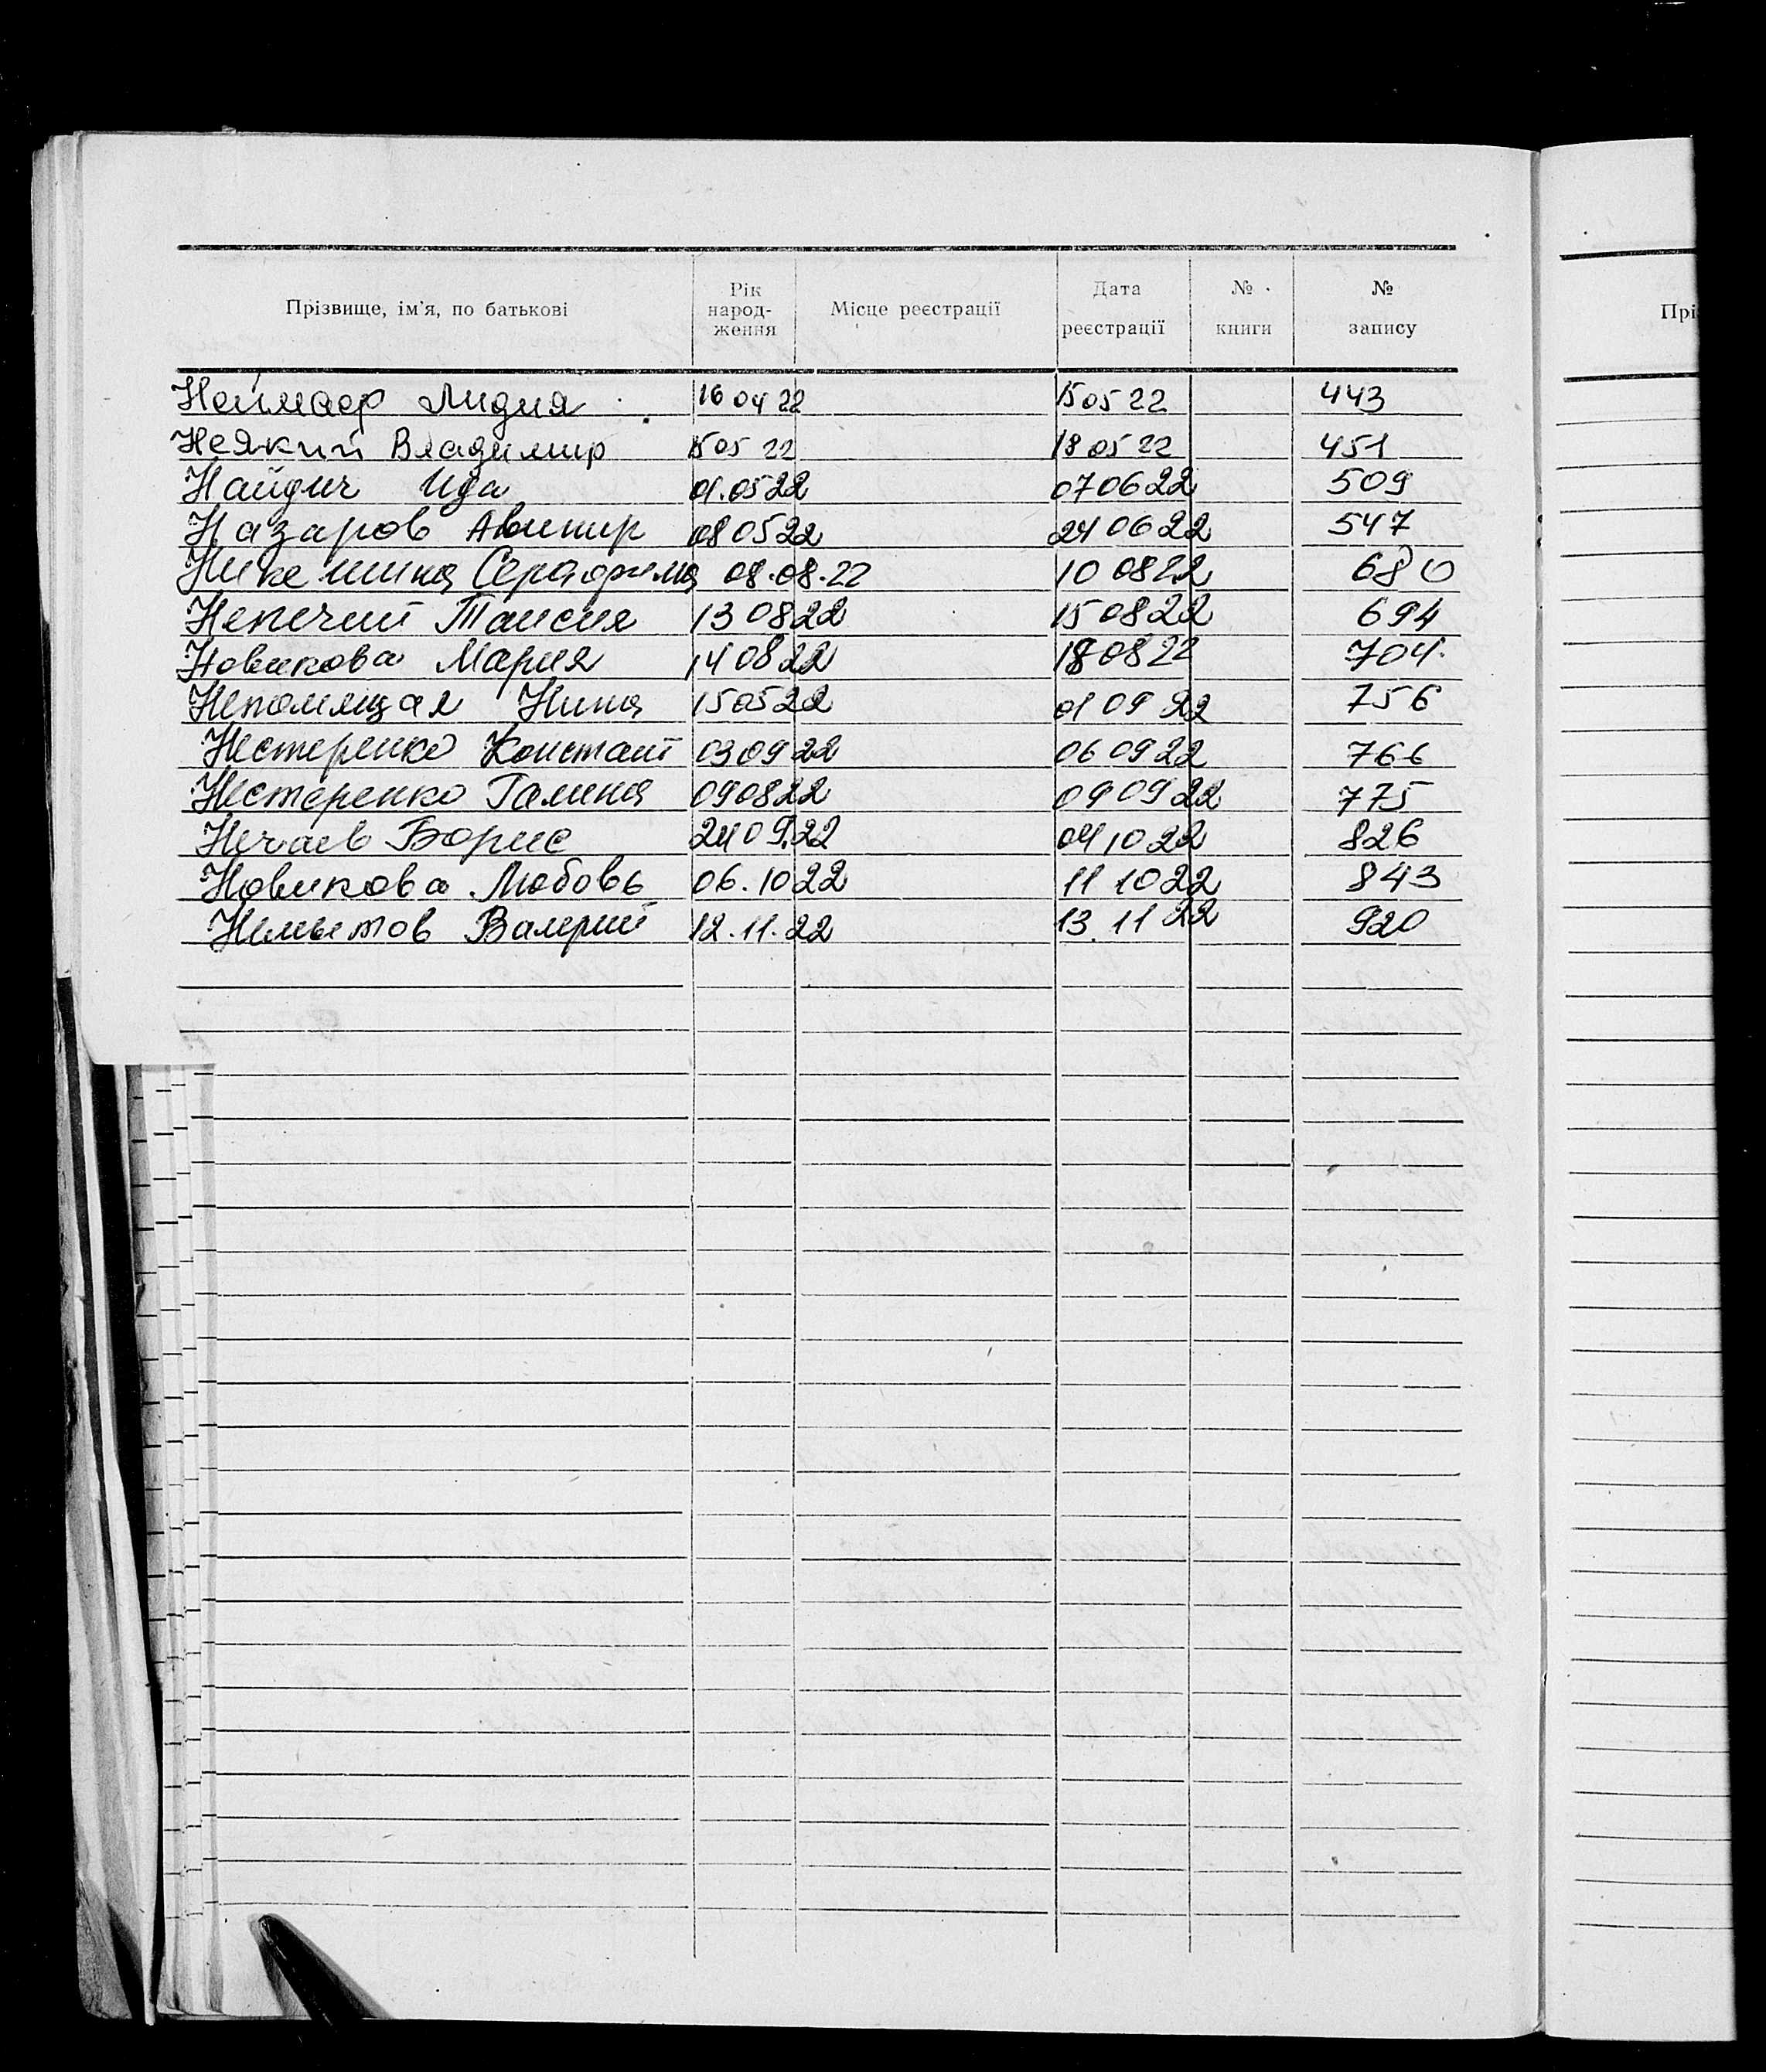 Прізвище, ім'я, по батькові Рік народ-ження Місце реєстрації Дата реєстрації № книги № запису
Прі
Неймаер Лидия 16 04 22 15 05 22 443
Неякий Владимир 15 05 22 18 05 22 451
Найдич Ида 01.05 22 07 06 22 509
Назаров Авинир 08 05 22 24 06 22 547
Никешина Серафима 08.08.22 10 08 22 680
Непечий Таисия 13 08 22 15 08 22 694
Новикова Мария 14 08 22 18 08 22 704
Непомящая Нина 15 05 22 01 09 22 756
Нестеренко Констант 03 09 22 06 09 22 766
Нестеренко Галина 09 08 22 09 09 22 775
Нечаев Борис 24 09.22 04 10 22 826
Новикова Любовь 06.10 22 11 10 22 843
Немытов Валерий 12.11.22 13.11 22 920